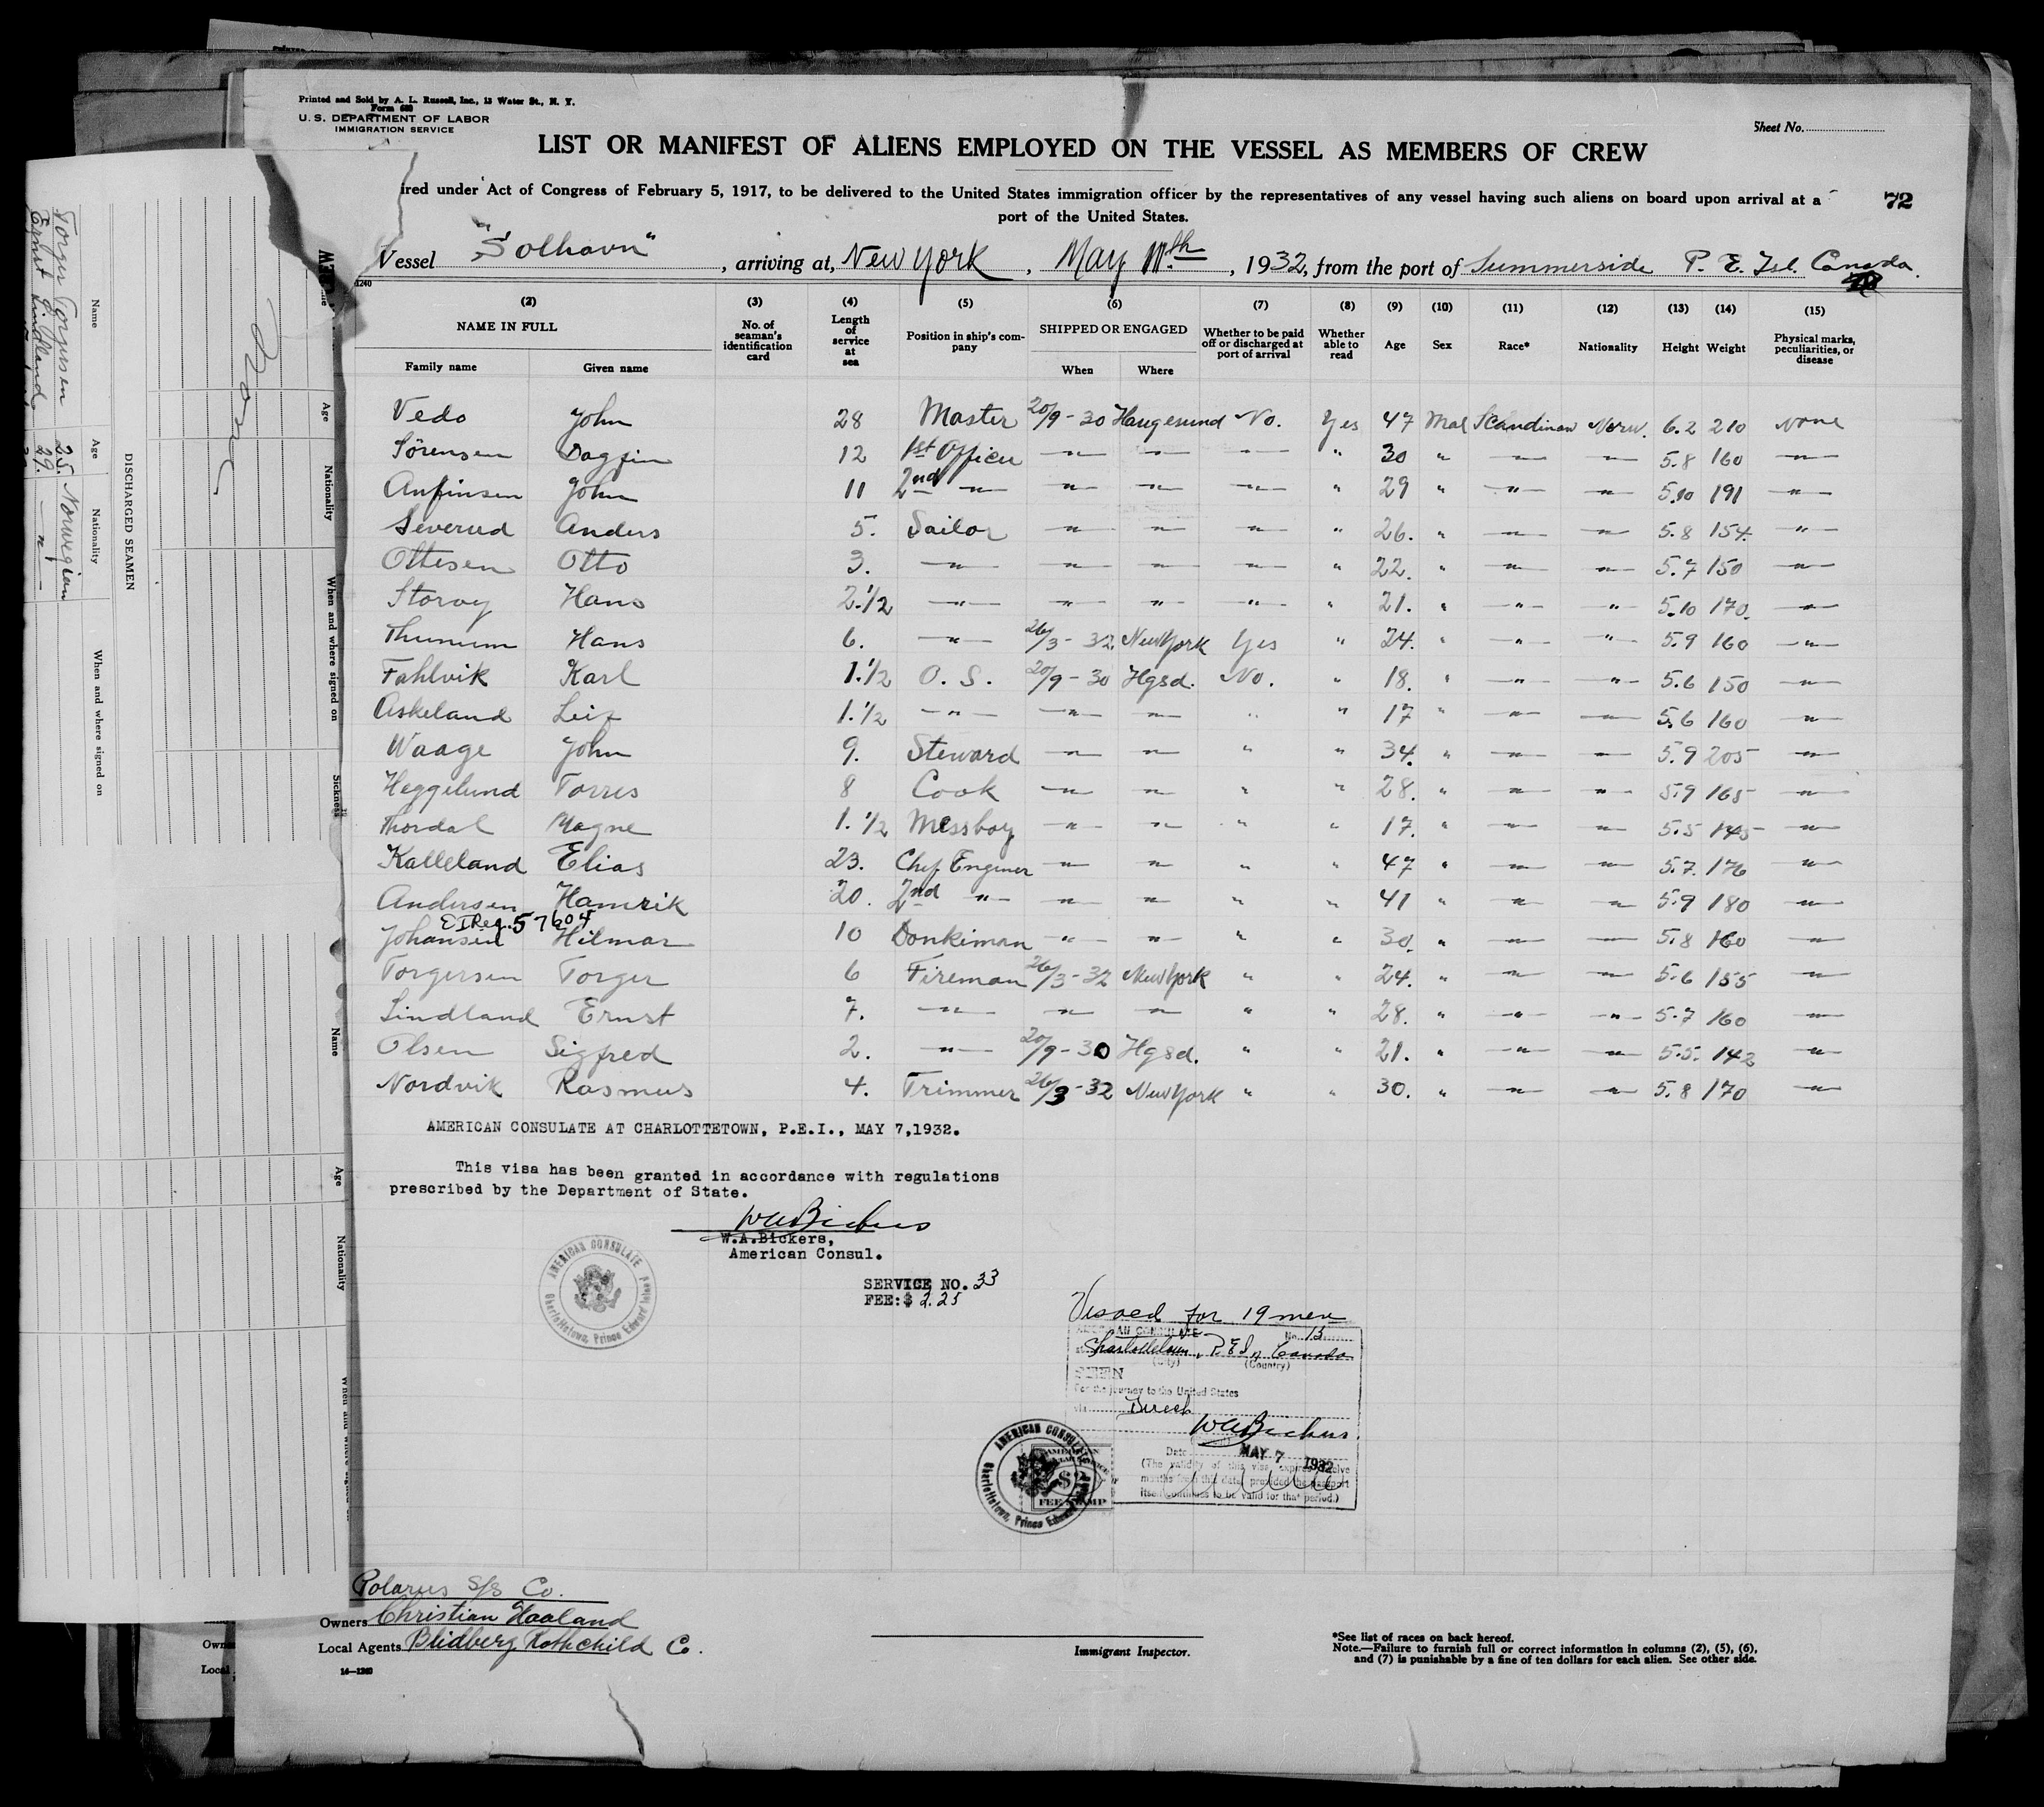 Printed and Sold by A. L. Russell, Inc., 13 Water St., N. Y.
Form 680
U. S. DEPARTMENT OF LABOR
IMMIGRATION SERVICE
Sheet No.
LIST OR MANIFEST OF ALIENS EMPLOYED ON THE VESSEL AS MEMBERS OF CREW
ired under Act of Congress of February 5, 1917, to be delivered to the United States immigration officer by the representatives of any vessel having such aliens on board upon arrival at a
port of the United States.
72
Vessel "Solhavn", arriving at, New York, May 11th, 1932, from the port of Summerside P. E. Isl. Canada.
1240
(2) (3) (4) (5) (6) (7) (8) (9) (10) (11) (12) (13) (14) (15)
NAME IN FULL No. of seaman's identification card Length of service at sea Position in ship's company SHIPPED OR ENGAGED Whether to be paid off or discharged at port of arrival Whether able to read Age Sex Race* Nationality Height Weight Physical marks, peculiarities, or disease
Family name Given name When Where
Vedo John 28 Master 20/9-30 Haugesund No. Yes 47 Mal Scandinav Norw. 6.2 210 None
Sörensen Dagfin 12 1st Officer -"- -"- -"- " 30 " -"- -"- 5.8 160 -"-
Anfinsen John 11 2nd -"- -"- -"- -"- " 29 " -"- -"- 5.10 191 -"-
Severud Anders 5. Sailor -"- -"- -"- " 26. " -"- -"- 5.8 154 -"-
Ottesen Otto 3. -"- -"- -"- -"- " 22. " -"- -"- 5.7 150 -"-
Storöy Hans 2.1/2 -"- -"- -"- -"- " 21. " -"- -"- 5.10 170. -"-
Thumum Hans 6. -"- 26/3-32 New York Yes " 24. " -"- -"- 5.9 160 -"-
Fahlvik Karl 1.1/2 O. S. 20/9-30 Hgsd. No. " 18. " -"- -"- 5.6 150 -"-
Askeland Leif 1.1/2 -"- -"- -"- " " 17 " -"- -"- 5.6 160 -"-
Waage John 9. Steward -"- -"- " " 34. " -"- -"- 5.9 205 -"-
Heggelund Torris 8 Cook -"- -"- " " 28. " -"- -"- 5.9 165 -"-
Thordal Magne 1.1/2 Messboy -"- -"- " " 17. " -"- -"- 5.5 145 -"-
Kalleland Elias 23. Chef Enginer -"- -"- " " 47 " -"- -"- 5.7. 176 -"-
Andersen Hamrik 20. 2nd -"- -"- -"- " " 41 " -"- -"- 5.9 180 -"-
E I Reg. 57604
Johansen Hilmar 10 Donkiman -"- -"- " " 30. " -"- -"- 5.8 160 -"-
Torgersen Torger 6 Fireman 26/3-32 New York " " 24. " -"- -"- 5.6 155 -"-
Lindland Ernst 7. -"- -"- -"- " " 28. " -"- -"- 5.7 160 -"-
Olsen Sigfred 2. -"- 20/9-30 Hgsd. " " 21. " -"- -"- 5.5. 142 -"-
Nordvik Rasmus 4. Trimmer 26/3-32 New York " " 30. " -"- -"- 5.8 170 -"-
AMERICAN CONSULATE AT CHARLOTTETOWN, P.E.I., MAY 7,1932.
This visa has been granted in accordance with regulations
prescribed by the Department of State.
WABickers
W.A.Bickers,
American Consul.
AMERICAN CONSULATE Charlottetown, Prince Edward Island
SERVICE NO. 33
FEE: $ 2.25
Visaed for 19 men
AMERICAN CONSULATE No. 13
Charlottetown, P.E.I., Canada
(City) (Country)
SEEN
For the journey to the United States
via Direct
WABickers.
Date MAY 7 1932
(The validity of this visa expires twelve
months from this date, provided the passport
itself continues to be valid for that period.)
AMERICAN CONSULATE Charlottetown, Prince Edward Island
$2
FEE STAMP
Polarus S/S Co.
Owners Christian Haaland
Local Agents Blidberg Rothchild Co.
14-1240
Immigrant Inspector.
*See list of races on back hereof.
Note.—Failure to furnish full or correct information in columns (2), (5), (6),
and (7) is punishable by a fine of ten dollars for each alien. See other side.
DISCHARGED SEAMEN
Name Age Nationality When and where signed on
Torger Torgersen 25. Norwegian
Ernst Lindland 29. -"-
Age Nationality When and where signed on Sickness
None
Name Age Nationality When and where signed on
Owne
Local